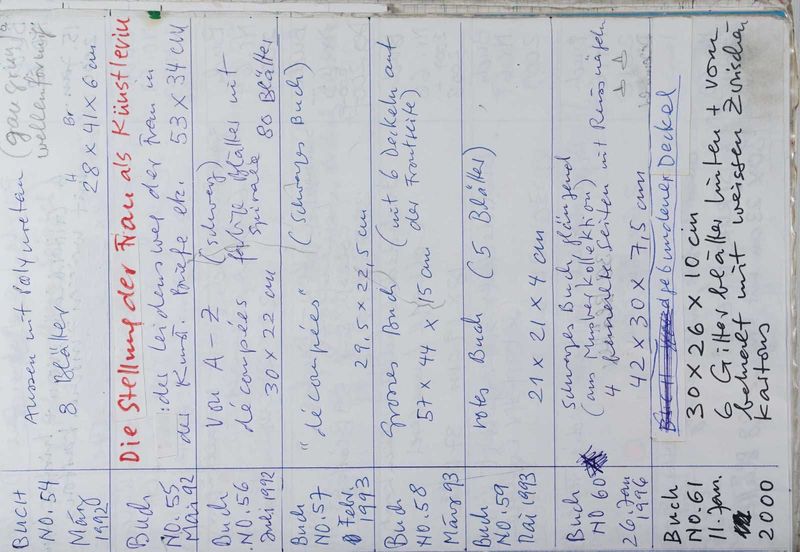 BUCH
NO. 54
März
1992
Aussen mit Polyuretan (ganz
wellenförmig
8 Blätter
H Br
28 x 41 x 6 cm
Buch
NO. 55
Mai 92
Die Stellung der Frau als Künstlerin
: der Leidensweg der Frau in
der Kunst. Briefe etc. 53 x 34 cm
Buch
NO. 56
Juli 1992
Von A – Z (schwarz)
découpées farbige Blätter mit
Spirale
30 x 22 cm 80 Blätter
Buch
NO. 57
Febr.
1993
"découpées" (schwarzes Buch)
29,5 x 22,5 cm
Buch
NO. 58
März 93
Grosses Buch (mit 6 Deckeln auf
57 x 44 x 15 cm der Frontseite)
Buch
NO. 59
Mai 1993
rotes Buch (5 Blätter)
21 x 21 x 4 cm
Buch
NO 60
26. Jan
1996
Schwarzes Buch, glänzend
(aus Musterkollektion)
4 Seiten mit
42 x 30 x 7,5 cm
Buch
NO. 61
11. Jan.
2000
gebundener Deckel
30 x 26 x 10 cm
6 Gitterblätter hinten + vorn
bemalt mit weissen Zwischen-
kartons